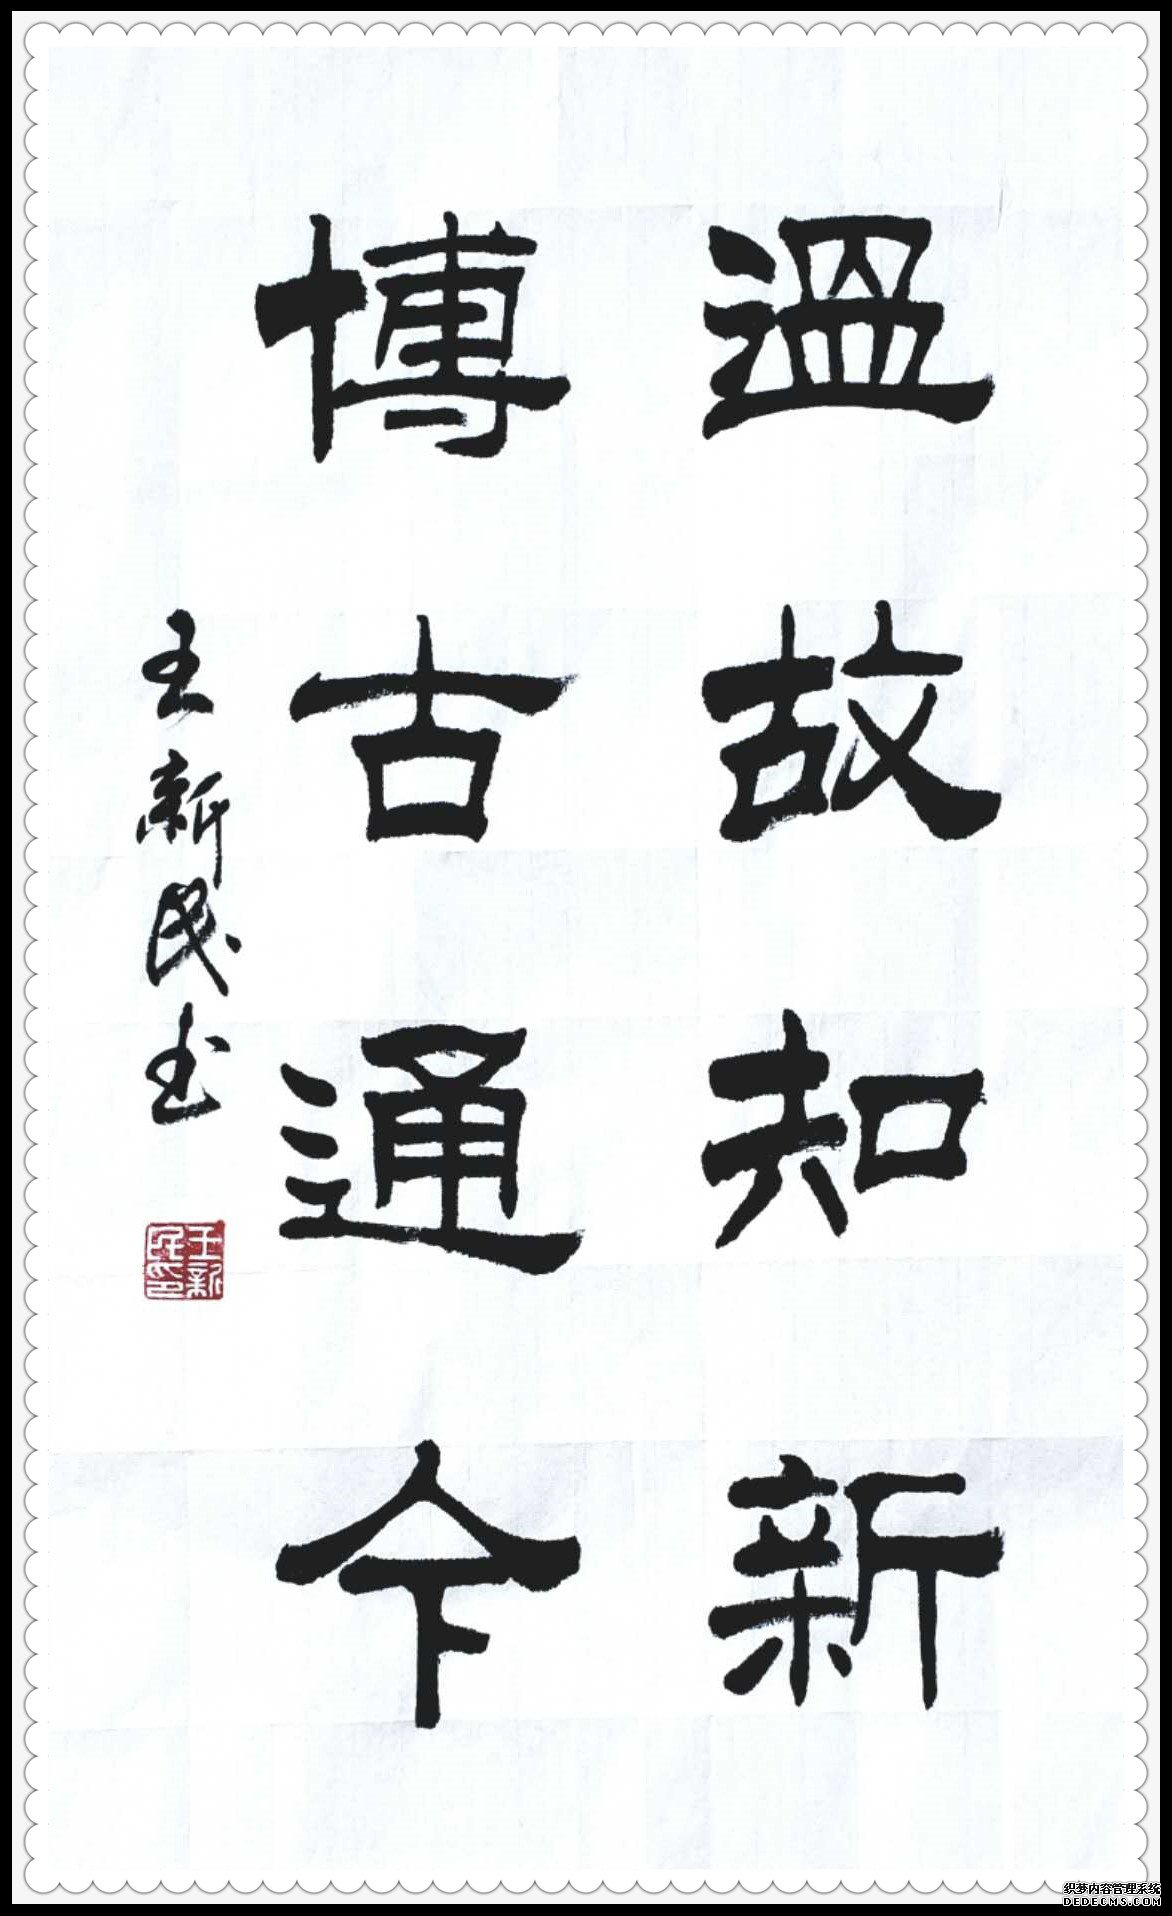 温故知新
博古通今
王新民书
王新民印
织梦内容管理系统
DEDECMS.COM